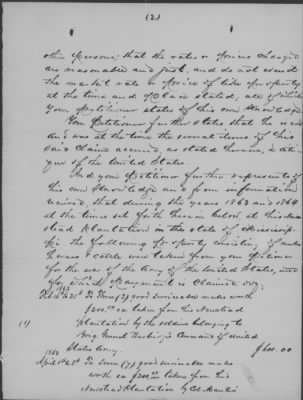 (2)
other persons; that the rates or prices charged
are reasonable and just, and do not exceed
the market rate or price of like property
at the time and place stated, all of which
Your Petitioner states of his own Knowledge.
Your Petitioner further states that he is and
was at the time the several items of this
said Claim accrued, as stated herein, a citi-
zen of the United States.
And your Petitioner further represents of
his own Knowledge and from information
received, that during the years 1863 and 1864
at the times set forth herein below, at his New
stead Plantation in the state of Mississip-
pi the following property consisting of mules
horses & cattle were taken from your Petitioner
for the use of the Army of the United States, and
for which payment is claimed, viz;
1863
To Three (3) good serviceable mules worth
$200.00 ea taken from his Newstead
(1) Plantation by the soldiers belonging to
Brig. General Command of United
States Army $600.00
1863
April To Seven (7) good serviceable mules
worth ea $200.00 taken from his
Newstead Plantation by Col.